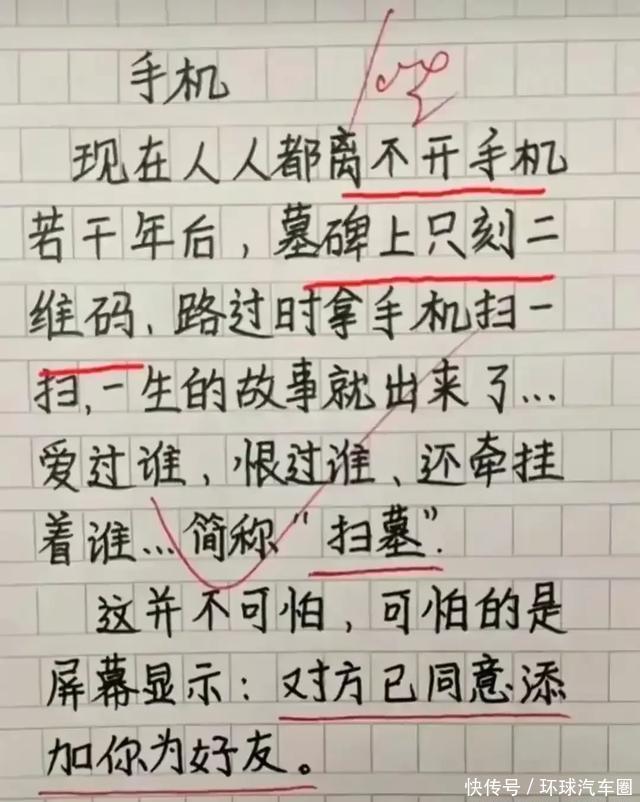 手机
现在人人都离不开手机
若干年后，墓碑上只刻二
维码、路过时拿手机扫一
扫,一生的故事就出来了...
爱过谁，恨过谁、还牵挂
着谁...简称“扫墓”.
这并不可怕，可怕的是
屏幕显示：对方已同意添
加你为好友。
快传号／环球汽车圈